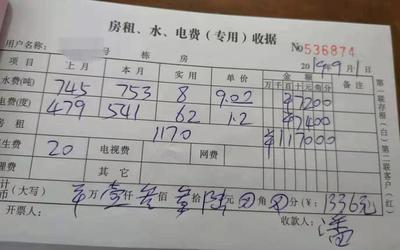 房租、水、电费(专用)收据
No 536874
用户名称: 号 栋 房 2019年9月1日
项目 上月 本月 实用 单价 金额 备注
万 千 百 十 元 角 分
水费(吨) 745 753 8 9.00 ¥7200
电费(度) 479 541 62 1.2 ¥7400
房租 1170 ¥117000
生费 20 电视费 网费
理费 其它
计
币(大写) 万 壹仟 叁佰 叁拾 陆元 角 分(¥: 1336元)
开票人: 收款人: 潘
第一联存根(白) 第二联客户(红)